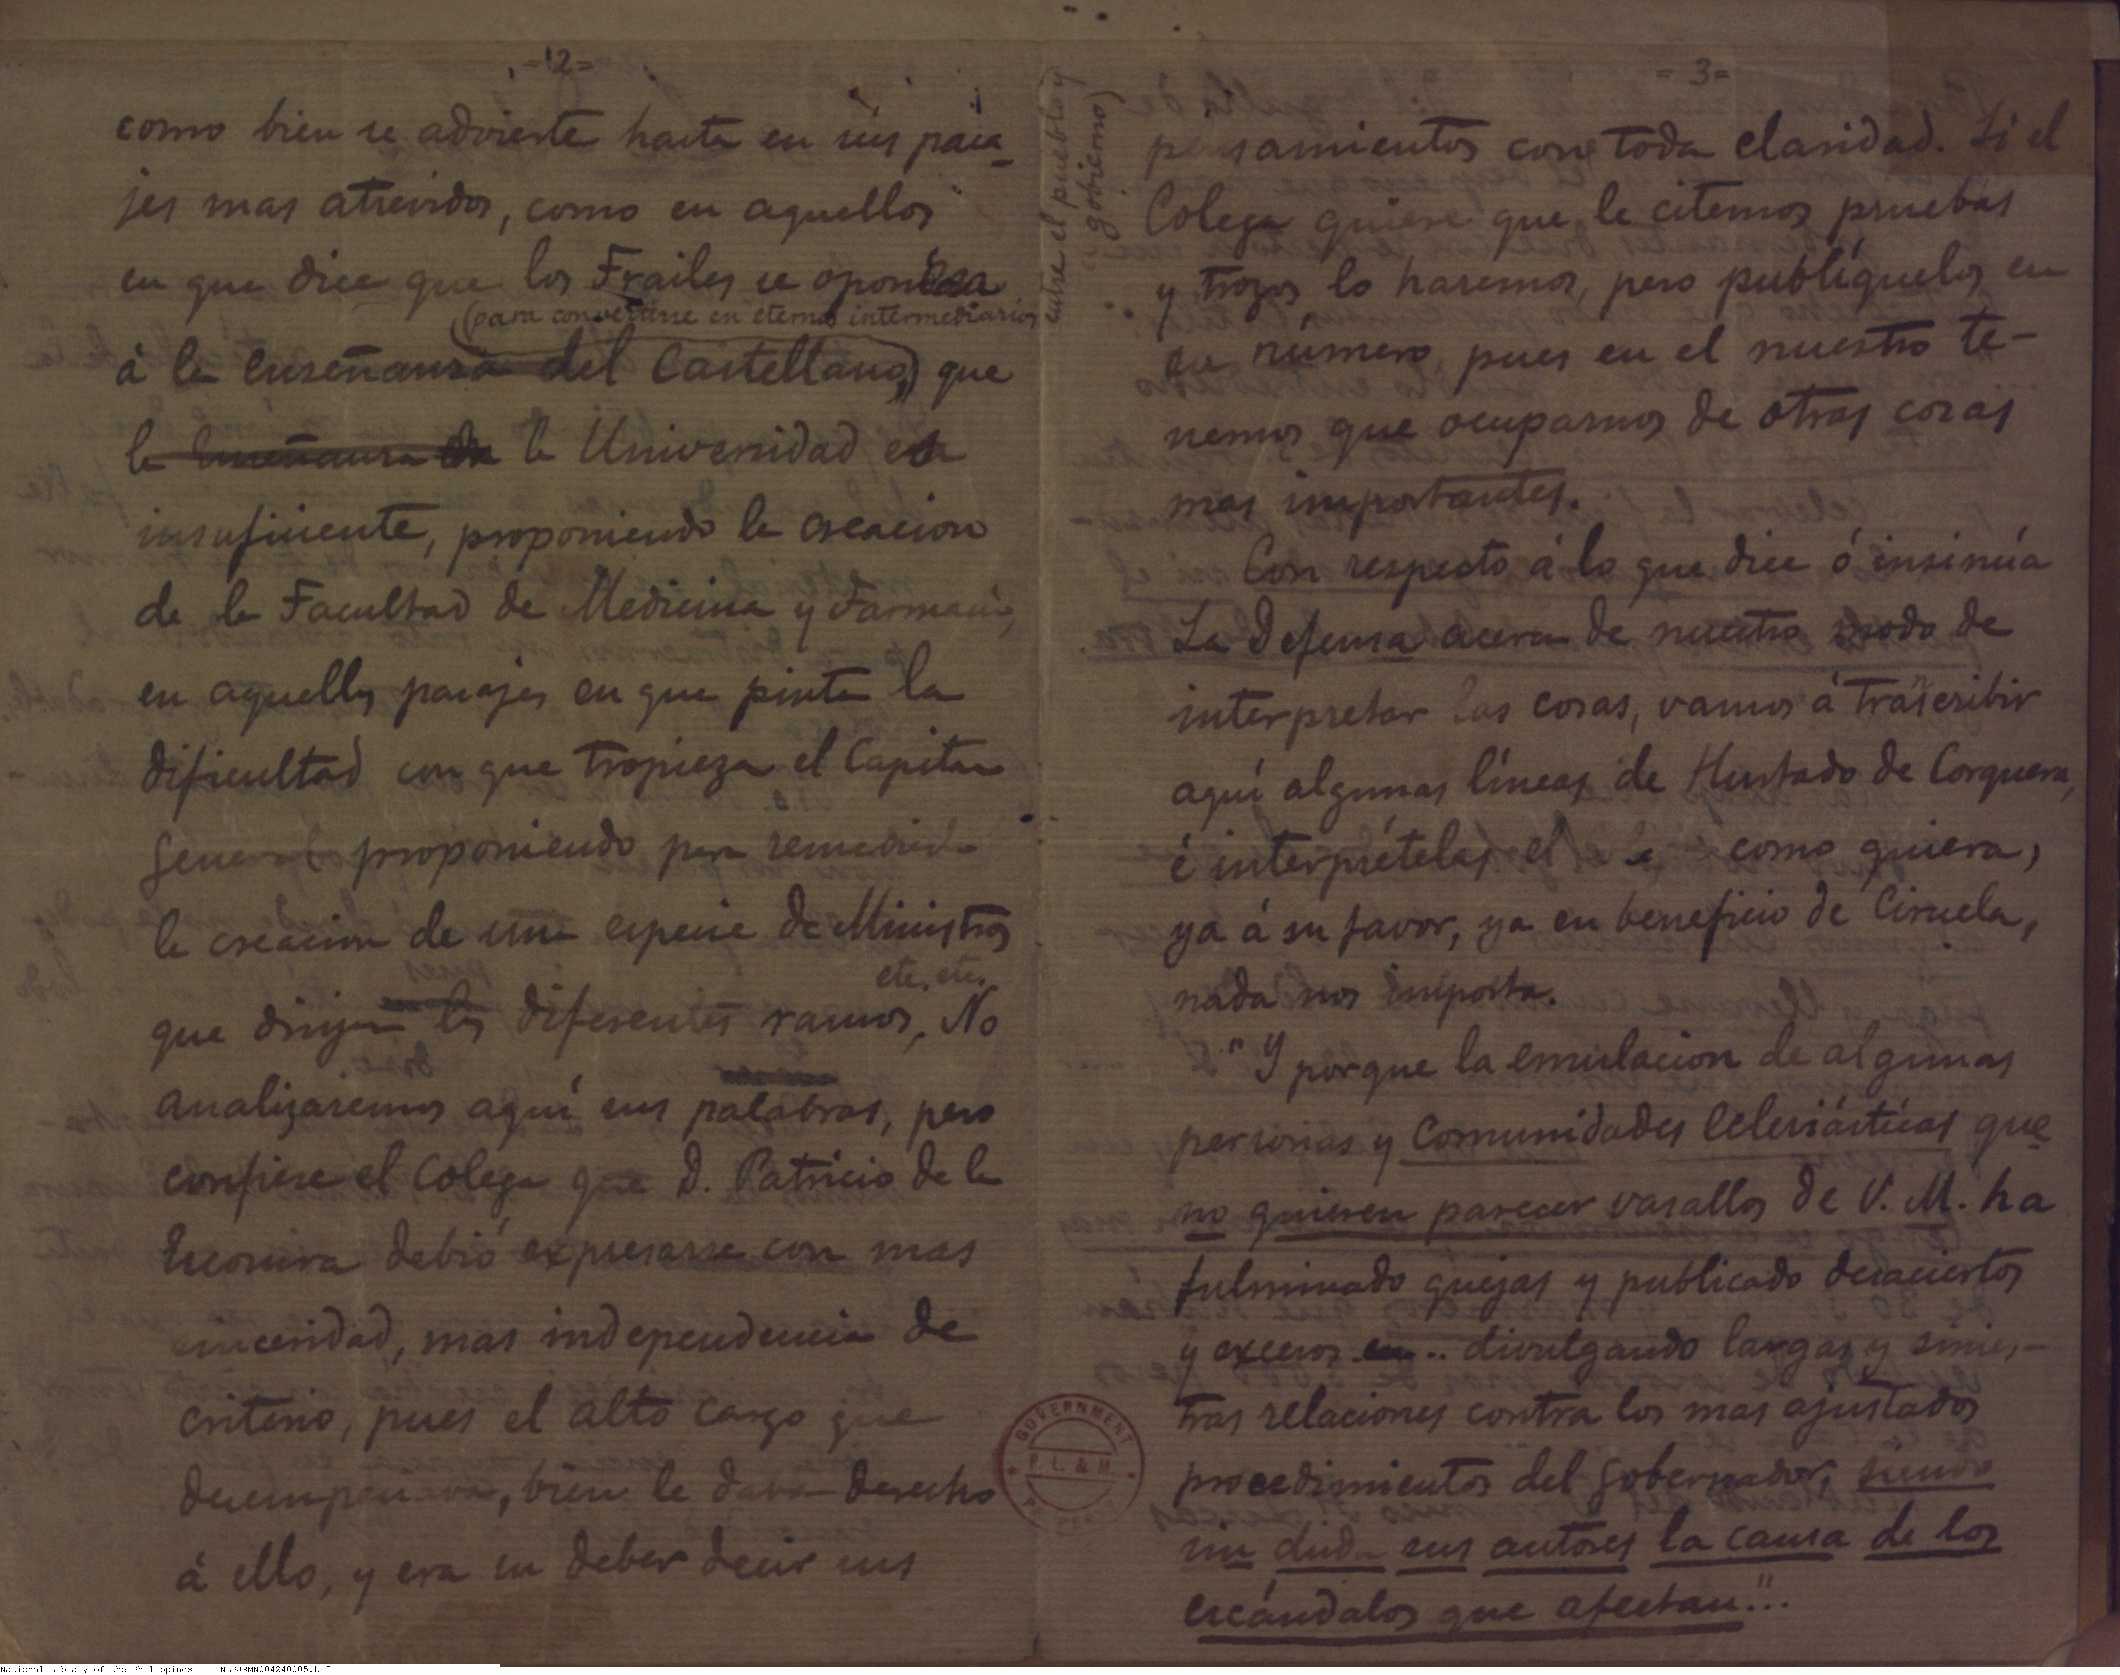 =2=
como bien se advierte hasta en sus pasa-
jes mas atrevidos, como en aquellos
en que dice que los Frailes se oponian
(para convertirse en eternos intermediarios
entre el pueblo y
gobierno)
á la enseñanza del Castellano, que
la enseñanza de la Universidad era
insuficiente, proponiendo la creacion
de la Facultad de Medicina y Farmacia,
en aquellos pasajes en que pinta la
dificultad con que tropieza el Capitan
General proponiendo para remediarla
la creacion de una especie de Ministros
que dirijan los diferentes ramos, etc. etc. No
analizaremos aquí sus palabras, pero
confiese el Colega que D. Patricio de la
Escosura debió expresarse con mas
sinceridad, mas independencia de
criterio, pues el alto cargo que
desempeñava, bien le dava derecho
á ello, y era su deber decir sus
=3=
pensamientos con toda claridad. Si el
Colega quiere que le citemos pruebas
y trozos lo haremos, pero publíquelos en
su número, pues en el nuestro te-
nemos que ocuparnos de otras cosas
mas importantes.
Con respecto á lo que dice ó insinúa
La Defensa acerca de nuestro modo de
interpretar las cosas, vamos á trascribir
aquí algunas líneas de Hurtado de Corquera,
é interprételas el como quiera,
ya á su favor, ya en beneficio de Ciruela,
nada nos importa.
"Y porque la emulacion de algunas
personas y Comunidades Eclesiásticas que
no quieren parecer vasallos de V. M. ha
fulminado quejas y publicado desaciertos
y excesos .. divulgando largas y sinies-
tras relaciones contra los mas ajustados
procedimientos del Gobernador, siendo
sin duda sus autores la causa de los
escándalos que afectan"...
GOVERNMENT
P. L. & M.